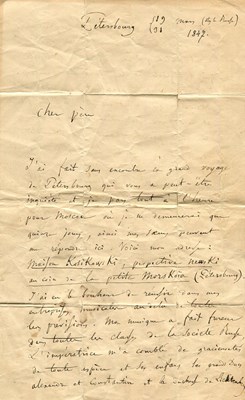 Pétersbourg 19 / 31 mars (style Russe)
1847.
Cher père
J'ai fait sans encombre le grand voyage
de Pétersbourg qui vous a peut-être
inquiété et je pars tout à l'heure
pour Moscou où je ne demeurerai que
quinze jours, ainsi vous pouvez
me répondre ici. Voici mon adresse :
Maison Kosikowski, perspective Newski
au coin de la petite Morskoïa (Pétersbourg).
J'ai eu le bonheur de réussir dans mon
entreprise musicale au-delà de toutes
les prévisions. Ma musique a fait fureur
dans toutes les classes de la Société Russe
L'impératrice m'a comblé de gracieusetés
de toute espèce et ses enfants les grands ducs
alexandre et Constantin et le